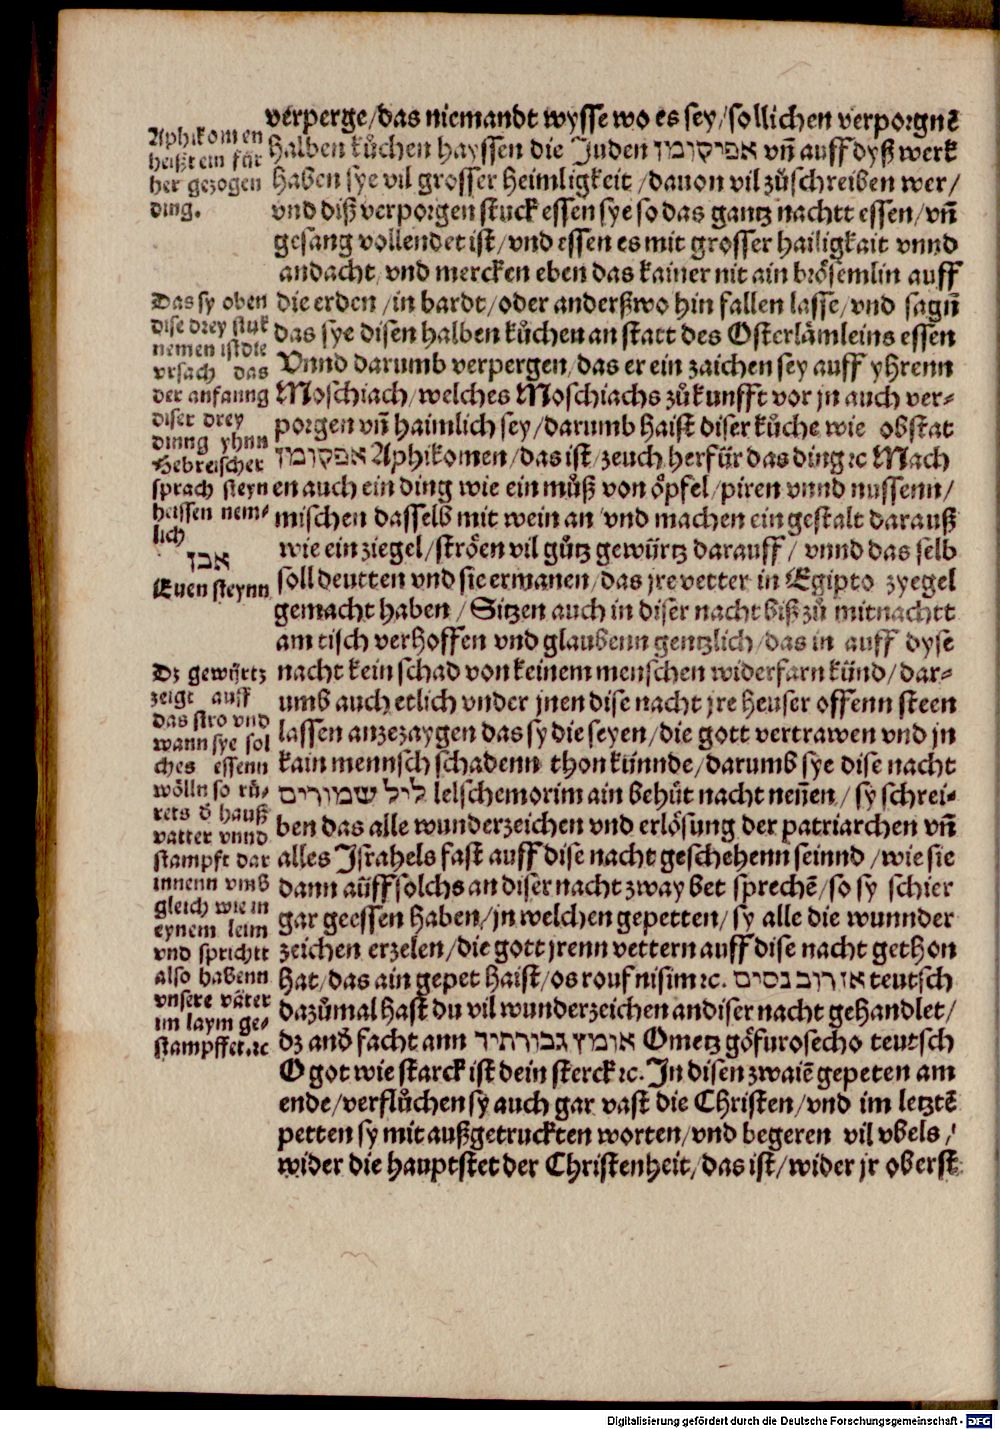 verperge/das niemandt wysse wo es sey/sollichen verporgnẽ
halben kůchen hayssen die Juden אפיקומן vñ auff dyß werk
haben sye vil grosser heimligkeit/dauon vil zůschreiben wer/
vnd diß verporgen stuck essen sye so das gantz nachtt essen/vñ
gesang vollendet ist/vnd essen es mit grosser hailigkait vnnd
andacht/vnd mercken eben das kainer nit ain brösemlin auff
die erden/in bardt/oder anderßwo hin fallen lasse/vnd sagñ
das sye disen halben kůchen an statt des Osterlämleins essen
Vnnd darumb verpergen/das er ein zaichen sey auff yhrenn
Moschiach/welches Moschiachs zůkunfft vor jn auch ver-
porgen vñ haimlich sey/darumb haist diser kůche wie obstat
אפקומן Aphikomen/das ist/zeuch herfür das ding ⁊c Mach
en auch ein ding wie ein můß von öpfel/piren vnnd nussenn/
mischen dasselb mit wein an vnd machen ein gestalt darauß
wie ein ziegel/ströen vil gůtz gewürtz darauff/vnnd das selb
soll deutten vnd sie ermanen/das jre vetter in Egipto zyegel
gemacht haben/Sitzen auch in diser nacht biß zů mitnachtt
am tisch verhoffen vnd glaubenn gentzlich/das in auff dyse
nacht kein schad von keinem menschen widerfarn künd/dar-
umb auch etlich vnder jnen dise nacht jre heuser offenn steen
lassen anzezaygen das sy die seyen/die gott vertrawen vnd jn
kain mennsch schadenn thon künnde/darumb sye dise nacht
ליל שמורים lelschemorim ain behüt nacht neñen/sy schrei-
ben das alle wunderzeichen vnd erlösung der patriarchen vñ
alles Jsrahels fast auff dise nacht geschehenn seinnd/wie sie
dann aüff solchs an diser nacht zway bet sprechẽ/so sy schier
gar geessen haben/jn welchen gepetten/sy alle die wunnder
zeichen erzelen/die gott jrenn vettern auff dise nacht gethon
hat/das ain gepet haist/os rouf nisim ⁊c. אז רוב נסים teutsch
dazůmal hast du vil wunderzeichen an diser nacht gehandlet/
dz andˀ facht ann אומץ גבורתיך Ometz göfurosecho teutsch
O got wie starck ist dein sterck ⁊c. Jn disen zwaiẽ gepeten am
ende/verflůchen sy auch gar vast die Christen/vnd im letztẽ
petten sy mit außgetruckten worten/vnd begeren vil vbels/
wider die hauptstet der Christenheit/das ist/wider jr oberst
Aphikomen
heißt ein für
her gezogen
ding.
Das sy oben
dise drey stuk
nemen ist die
vrsach das
der anfanng
diser drey
dinng yhnn
Hebreischer
sprach steyn
heissen nem-
lich
אבן
Euen steynn
Dz gewürtz
zeigt auff
das stro vnd
wann sye sol
ches essenn
wölln so rü-
rets dˀ hauß
vatter vnnd
stampft dar
innenn vmb
gleich wie in
eynem leim
vnd sprichtt
also habenn
vnsere väter
im laym ge-
stampffet.⁊c
Digitalisierung gefördert durch die Deutsche Forschungsgemeinschaft - DFG